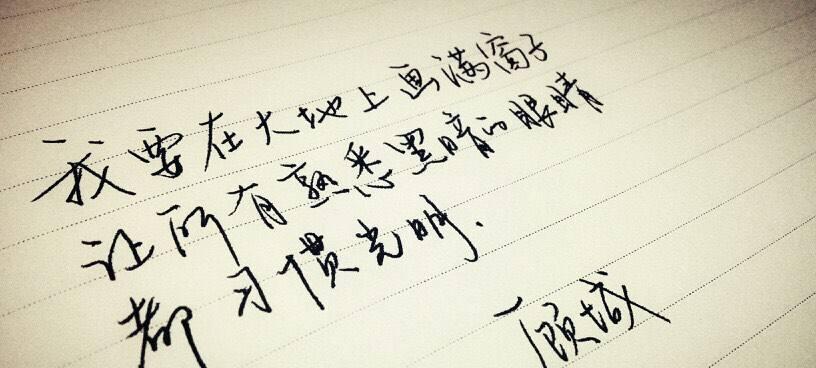 我要在大地上画满窗子
让所有熟悉黑暗的眼睛
都习惯光明.
顾城